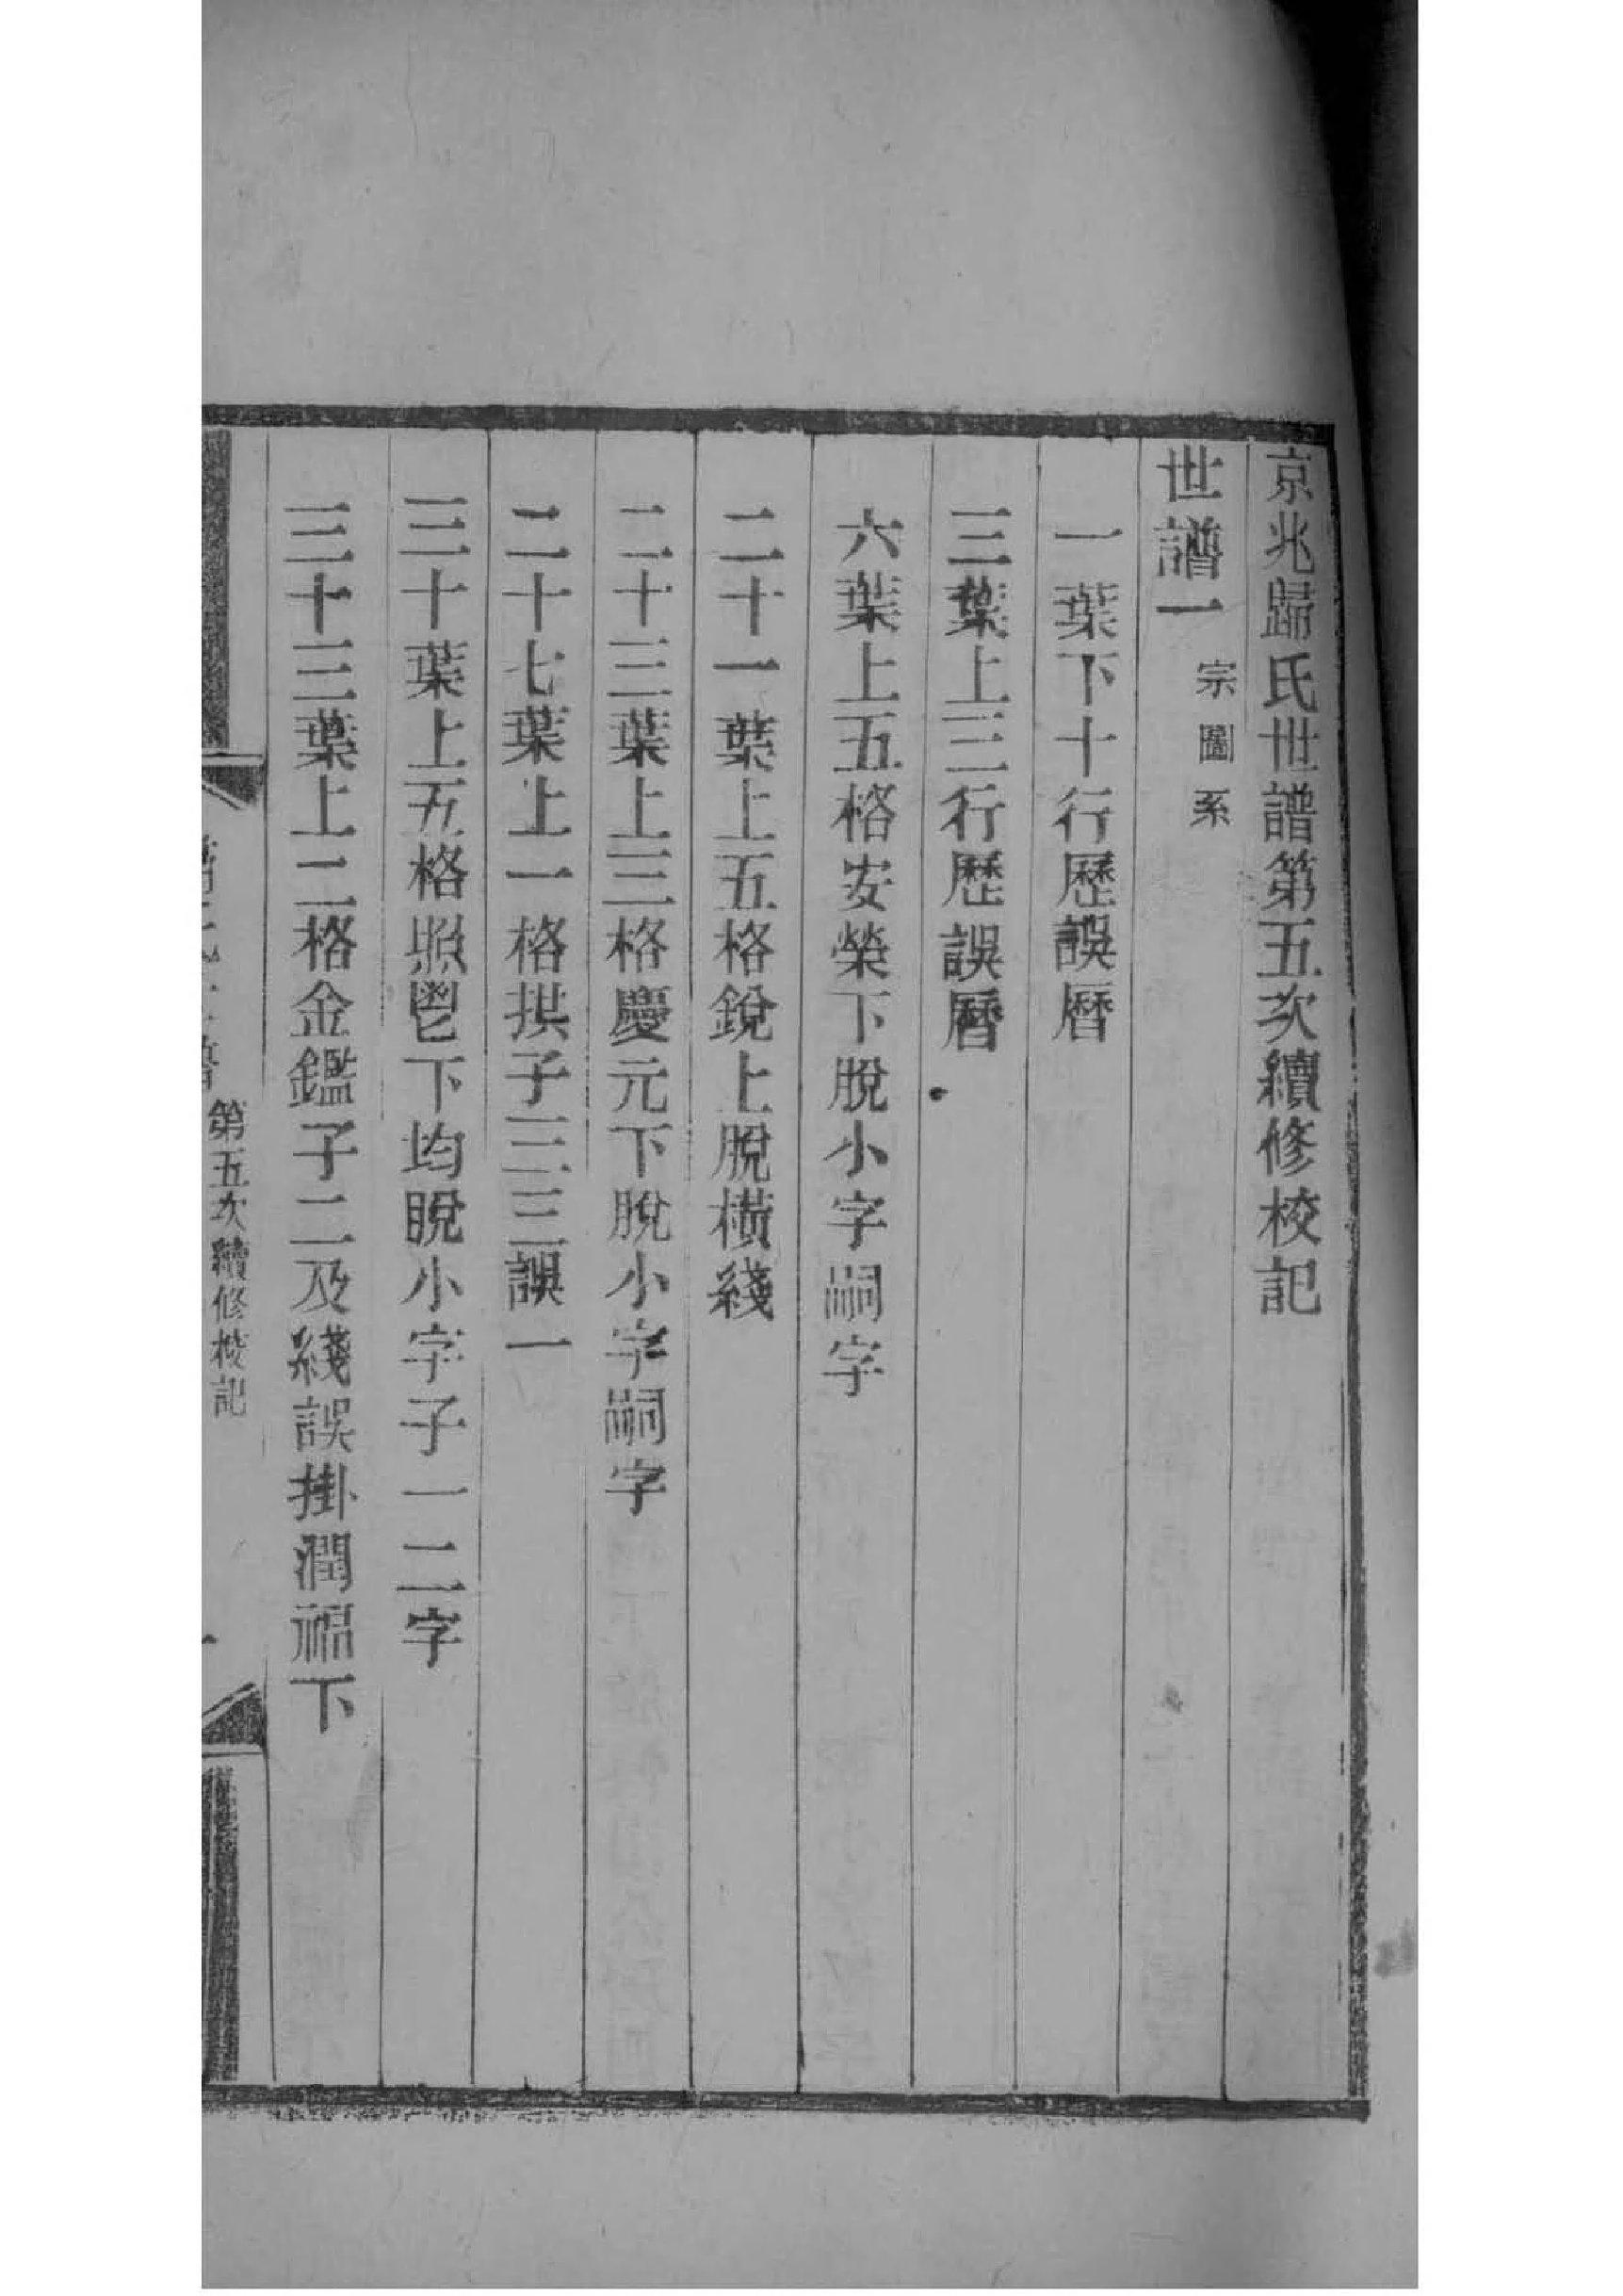 京兆歸氏世譜第五次續修校記
世譜一 宗圖系
一葉下十行歷誤曆
三葉上三行歷誤曆
六葉上五格安榮下脫小字嗣字
二十一葉上五格銳上脫橫綫
二十三葉上三格慶元下脫小字嗣字
二十七葉上一格拱子二三誤一
三十葉上五格照鬯下均脫小字子一二字
三十三葉上二格金鑑子二及綫誤掛潤福下
第五次續修校記